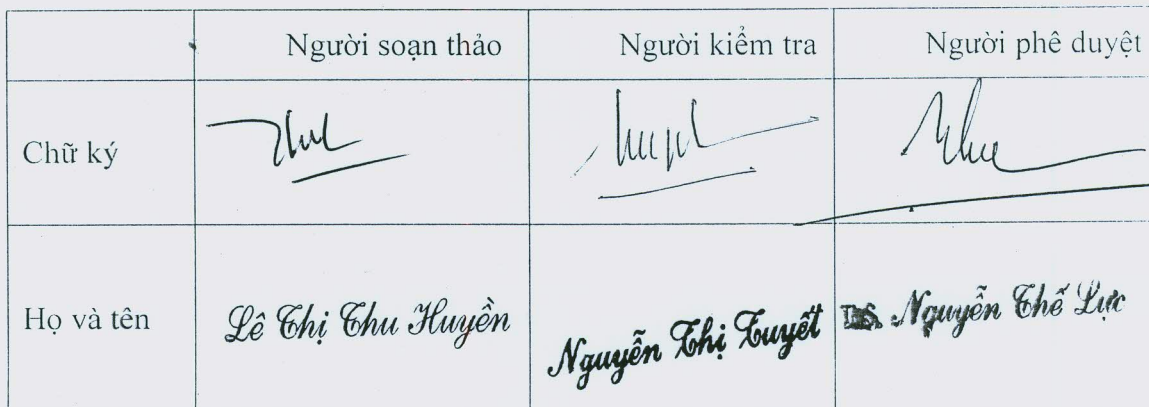 Người soạn thảo Người kiểm tra Người phê duyệt
Chữ ký
Họ và tên Lê Thị Thu Huyền Nguyễn Thị Tuyết Nguyễn Thế Lực